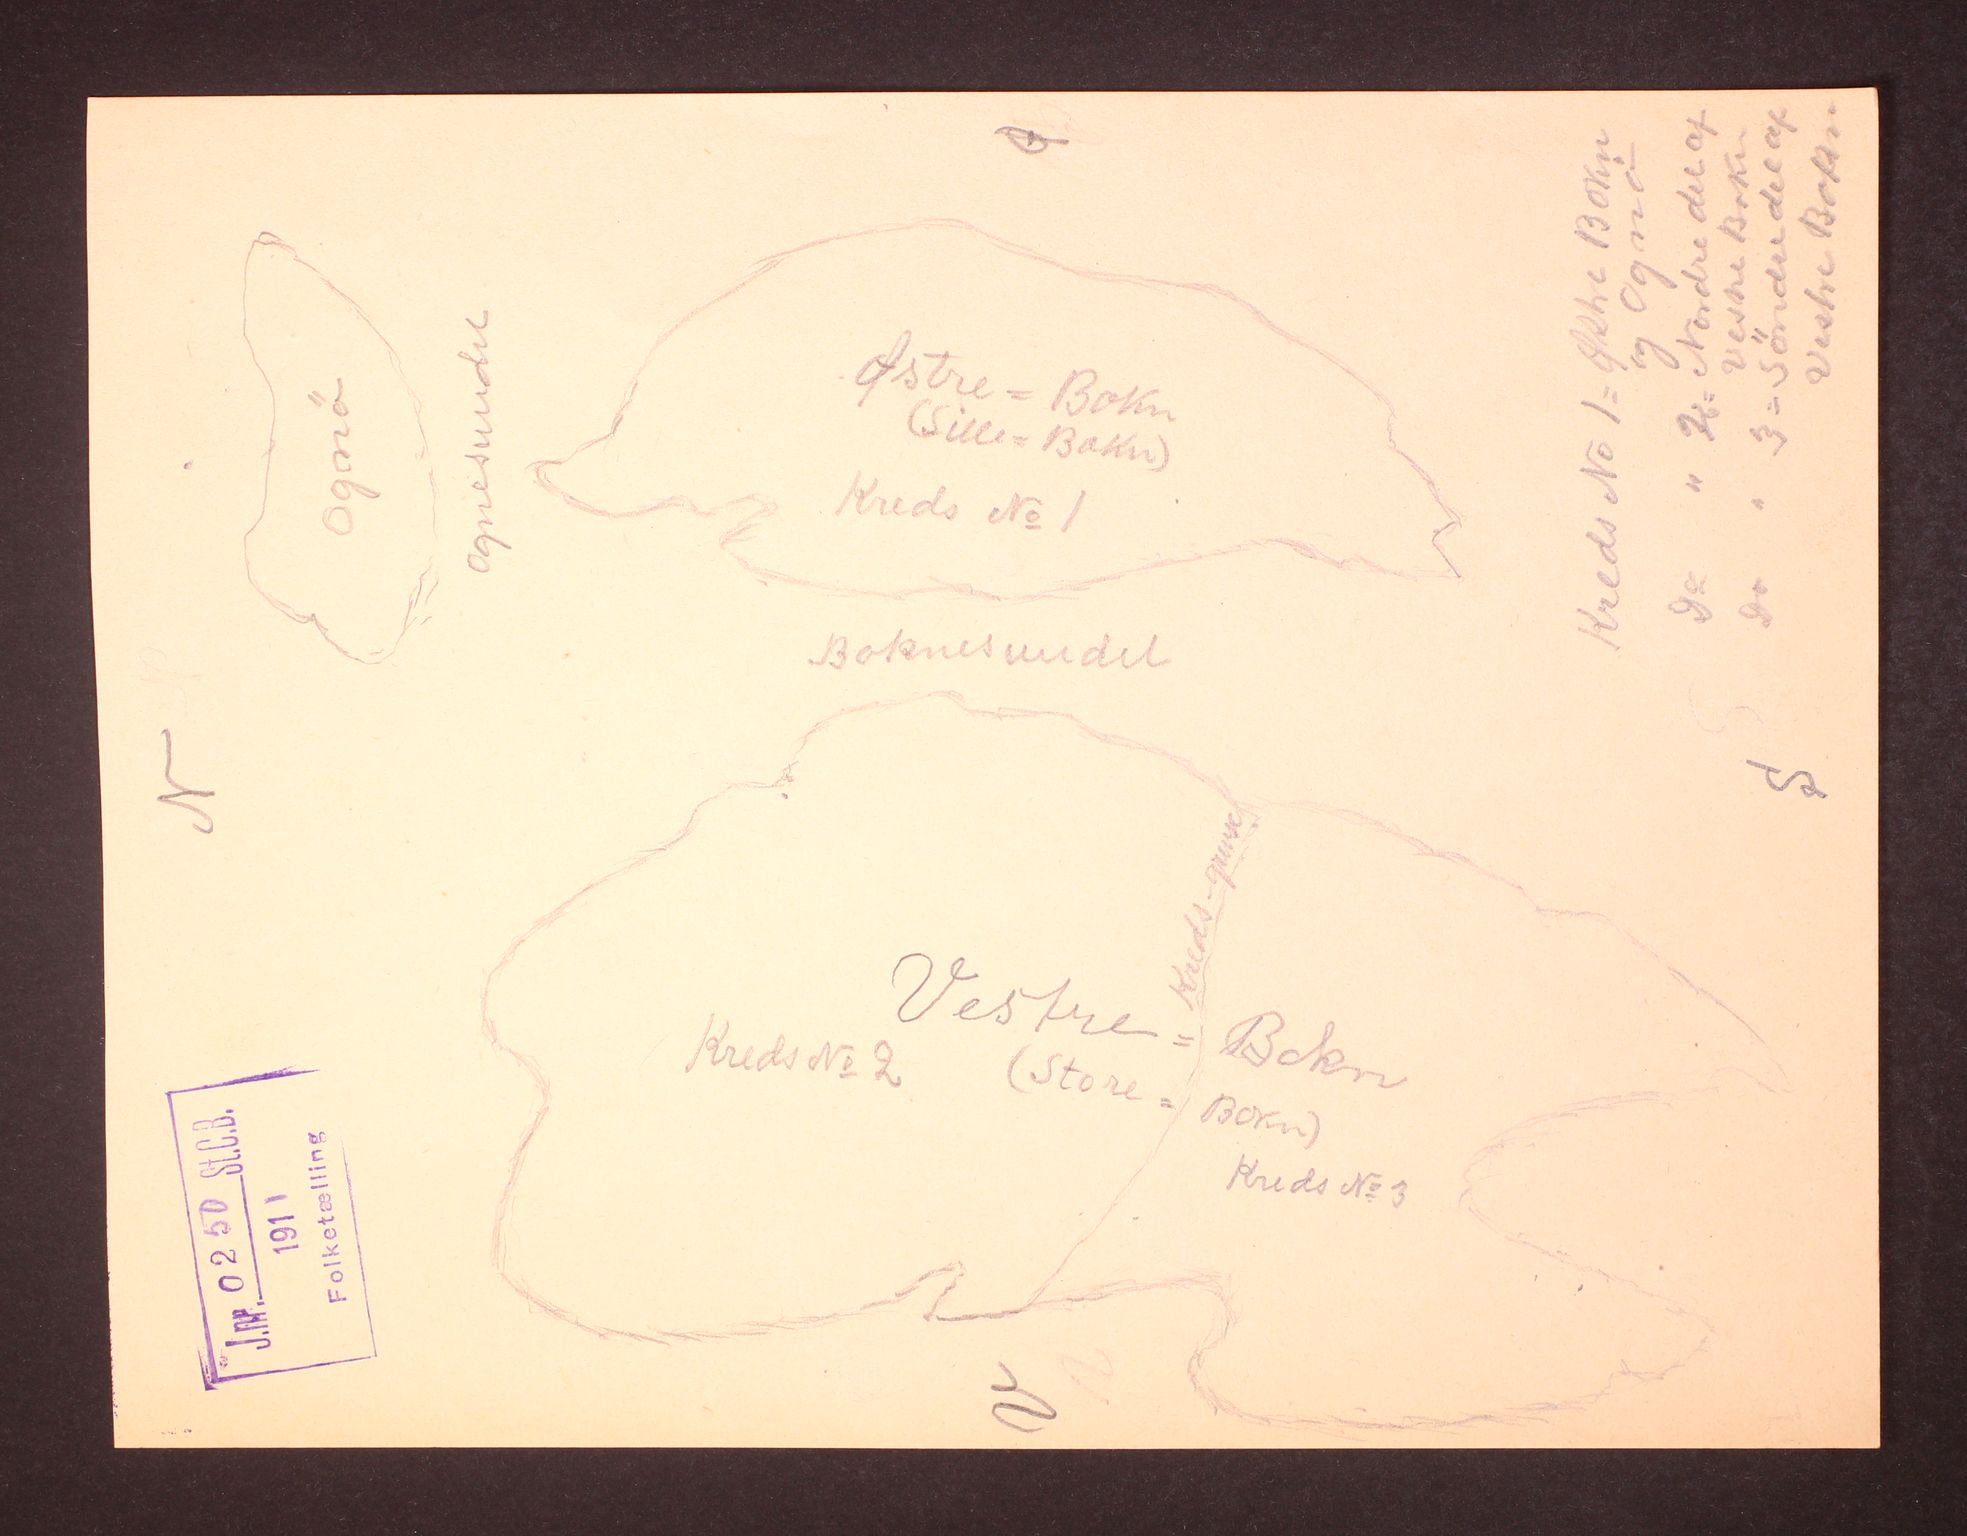 Ø
Ognö
Ognesundet
Østre = Bokn
(Lille = Bokn)
Kreds No 1
Boknesundet
N
S
Kreds-grense
Vestre = Bokn
(Store = Bokn)
Kreds No 2
Kreds No 3
V
Kreds No 1 = Østre Bokn
og Ognö
Do " 2 = Nordre del af
Vestre Bokn
Do " 3 = Söndre del af
Vestre Bokn
J.nr. 0250 St.C.B.
1911
Folketælling